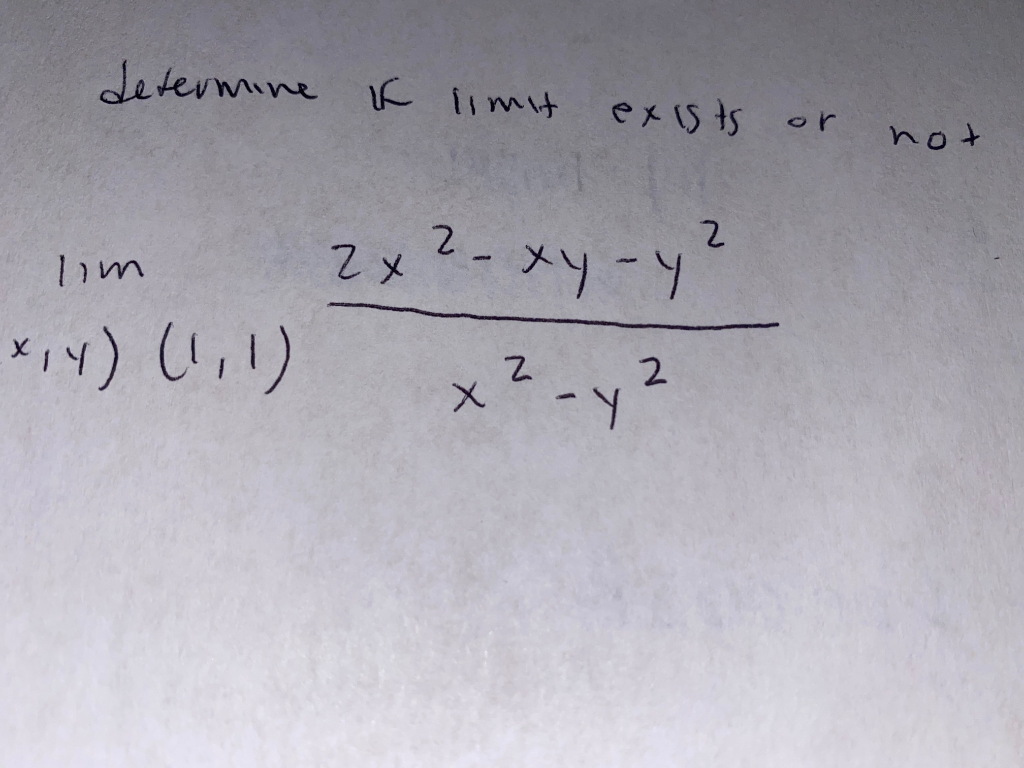 determine if limit exists or not
lim 2x² - xy - y²
x,y) (1,1) x² - y²